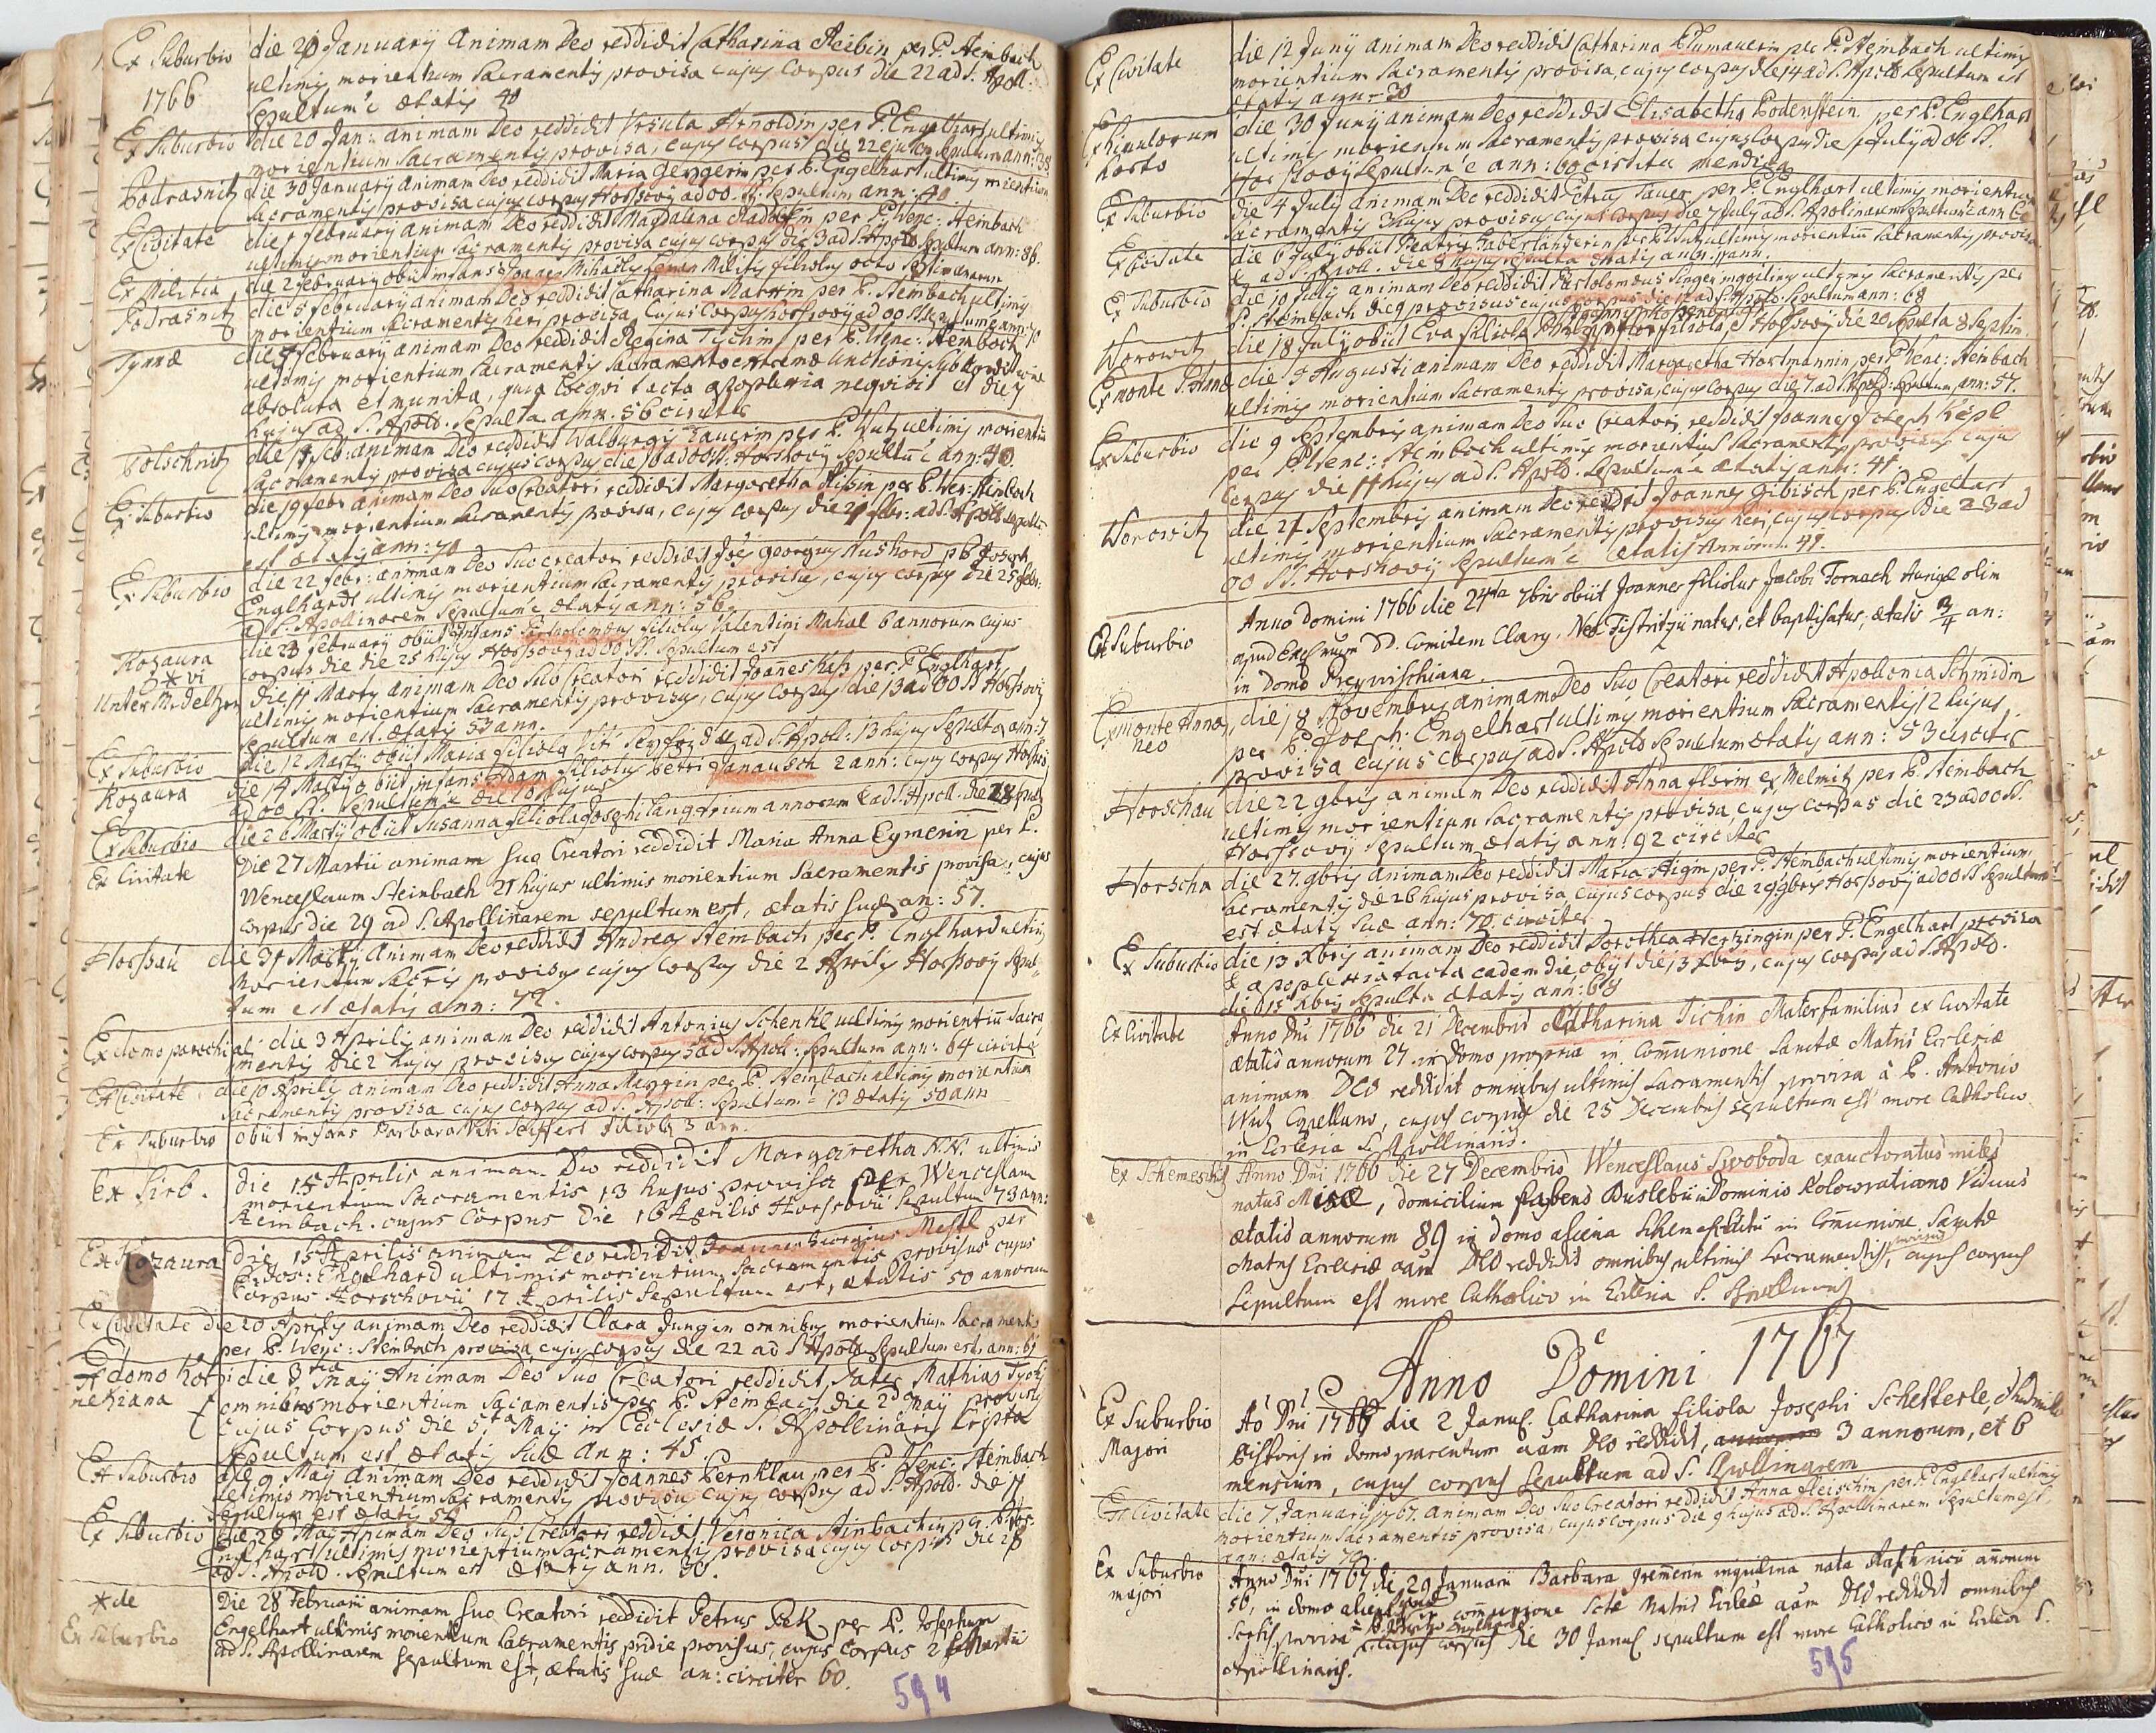 Ex Suburbio die 20 January Animam Deo reddidit Catharina per P. Steinbach
1766 ultimis morientium Sacramentis provisa cujus Corpus die 22 ad S. Apoll:
Sepultum ē ætatis 40
Ex Suburbio die 20 Jan: animam Deo reddidit Ursula Arnoldin per P. Engelhart ultimis
morientium Sacramentis provisa, cujus Corpus die 22 ejusdem Sepultum ann: 38
Podrasnitz die 30 January animam Deo reddidit Maria Gerggerin per P. Engelhart ultimis morientium
Sacramentis provisa cujus Corpus Horssovij ad OO. SS. Sepultum ann: 40.
Ex Civitate die 1 February animam Deo reddidit Magdalena per P. Wenc: Steinbach
ultimis morientium Sacramentis provisa cujus corpus die 3 ad S. Apoll Sepultum ann: 86.
Ex Militia die 2 February obiit infans Joannes Militis filiolus octo Septimanarum
Podrasnitz die 5 February animam Deo reddidit Catharina Martin per P. Steinbach ultimis
morientium Sacramentis heri provisa, Cujus Corpus Horssovij ad OO SS Sepultum ē ann: 70
Tynnæ die 7 February animam Deo reddidit Regina Tychin per P. Wenc: Steinbach
ultimis morientium Sacramentis Sacramento extremæ Unctionis sub conditione
absoluta et munita, quia loqui tacta apoplexia nequivit et die
hujus ad S. Apoll. Sepulta ann. 56 circiter
Potschritz die 14 Feb: animam Deo reddidit Walburgis Bauerin per P. Wutz ultimis morientium
Sacramentis provisa cujus Corpus die 16 ad OO SS. Horssovij Sepultū ē ann: 40.
Ex Suburbio die 19 Febr animam Deo Suo Creatori reddidit Margaretha per P. Wen: Steinbach
ultimis morientium Sacramentis provisa, cujus Corpus die 21 febr: ad S. Apoll sepultū
est ætatis ann: 70
Ex Suburbio die 22 febr: animam Deo Suo creatori reddidit Joēs Georgius Hushord p P. Joseph
Englhardt ultimis morientium Sacramentis provisus, cujus Corpus die 25 febr:
ad S. Apollinarem Sepultum ē ætatis ann: 56.
Kozaura die 23 February obiit Infans Bartholomæus filiolus Valentini Mahal 6 annorum Cujus
* vi corpus die die 25 hujus Horssovij ad OO SS. Sepultum est
Unter Medeltzen die 11 Marty Animam Deo Suo Creatori reddidit Joannes Hess per P. Englhart
ultimis morientium Sacramentis provisus, Cujus Corpus die 13 ad OO SS Horssovij
Sepultum est. ætatis 53 ann.
Ex Suburbio die 12 Marty obiit Maria filiola Viti Seyfrid ad S. Apoll: 13 hujus Sepulta ann: 7
Kozaura die 14 Marty obiit infans Adam filiolus Petri Janausch 2 ann: cujus Corpus Horssov
ad OO SS. Sepultum ē die 16 hujus
Ex Suburbio die 26 Marty obiit Susanna filiola Josephi Lang trium annorum ē ad S. Apoll. die 28 Sepulta
Ex Civitate Die 27 Martii animam suo Creatori reddidit Maria Anna Eymerin per P.
Wenceslaum Steinbach 21 hujus ultimis morientium Sacramentis provisa, cujus
corpus die 29 ad S. Apollinarem sepultum est, ætatis suæ an: 57.
Horssau die 31 Marty Animam Deo reddidit Andreas Steinbach per P. Englhard ultimis
Morientium Sacris provisus cujus Corpus die 2 Aprilis Horssovij Sepul-
tum est ætatis ann: 72.
Ex domo parochiali die 3 Aprilis animam Deo reddidit Antonius Schenkl ultimis morientiū Sacra
mentis die 2 hujus provisus cujus corpus 5 ad S. Apoll: Sepultum ann: 64 circiter
Ex Civitate die 10 Aprilis animam Deo reddidit Anna per P. Steinbach ultimis morientium
Sacramentis provisa cujus corpus ad S. Apoll: Sepultum ē 13 ætatis 50 ann
Ex Suburbio obiit infans Barbara Viti Seiffert filiola 3 ann.
Ex Sirb. die 15 Aprilis animam Deo reddidit Margaretha N.N. ultimis
morientium Sacramentis 13 hujus provisa per Wenceslaum
Steinbach. cujus Corpus die 16 Aprilis Horssovii Sepultum 73 ann:
Ex Kozaura die 15 Aprilis animam Deo reddidit Joannes Georgius Mestl per
P. Jos: Engelhard ultimis morientium Sacramentis provisus cujus
Corpus Horschovii 17 Aprilis Sepultum est, ætatis 50 annorum
Ex Civitate die 20 Aprilis animam Deo reddidit Clara Jungin omnibus morientium Sacramentis
per P. Wenc: Steinbach provisa, cujus corpus die 22 ad S Apoll Sepultum est, ann: 61
Ex domo Kor die 3tia May Animam Deo Suo Creatori reddidit Pater Mathias
nekiana omnibus morientium Sacramentis per P. Steinbach die 2da May provisus
Cujus Corpus die 5ta May in Ecclesiæ S. Apollinaris Crypta
Sepultum est ætatis Suæ Ann: 45
Ex Suburbio die 9 May animam Deo reddidit Joannes Bernklau per P. Wenc: Steinbach
ultimis morientium Sacramentis provisus cujus corpus ad S. Apoll. die 11
Sepultum est ætatis 56
Ex Suburbio die 26 May Animam Deo Suo Creatori reddidit Veronica Steinbachin per P. Jos:
Englhart ultimis morientium Sacramentis provisa cujus Corpus die 28
ad S. Apoll. Sepultum est ætatis ann. 30.
* de Die 28 Februarii animam suo Creatori reddidit Petrus Bek per P. Josephum
Ex Suburbio Engelhart ultimis morientium Sacramentis pridie provisus, cujus corpus 2 Martii
ad S. Apollinarem sepultum est, ætatis suæ an: circiter 60.
594
Ex Civitate die 12 Juny animam Deo reddidit Catharina Blumauerin per P. Steinbach ultimis
morientium Sacramentis provisa, cujus corpus die 14 ad S. Apoll Sepultum est
ætatis ann: 30
horto die 30 Juny animam Deo reddidit Elisabetha Bodenstein per P. Englhart
ultimis morientium Sacramentis provisa cujus Corpus die July ad OO SS.
Horssovij Sepultum ē ann: 60 circiter mendica
Ex Suburbio die 4 July animam Deo reddidit Petrus Bauer per P. Englhart ultimis morientium
Sacramentis 3 hujus provisus cujus Corpus die 7 July ad S. Apolinarem Sepultum ē ann
Ex Civitate die 6 July obiit Beatrix Haberlanderin per P. Wutz ultimis morientiū Sacramentis provisa
ē ad S. Apoll. die 8 hujus sepulta ætatis ann:
Ex Suburbio die 10 July animam Deo reddidit Bartolomæus Singer inquilinus ultimis Sacramentis per
P. Steinbach die 9 provisus cujus corpus die 12 ad S. Apoll. Sepultum ann: 68
Worowitz die 18 July obiit Eva filiola filiola ē Horssovij die 20 Sepulta 8 Septim
Ex monte S. Annæ die 5 Augusti animam Deo reddidit Margaretha Hartmannin per P. Wenc: Steinbach
ultimis morientium Sacramentis provisa, cujus Corpus die 7 ad S. Apoll: Sepultum ann: 57.
Ex Suburbio die 9 Septembris animam Deo Suo Creatori reddidit Joannes Joseph Kepl
per P. Wenc: Steinbach ultimis morientiū Sacramentis provisus cujus
Corpus die 11 hujus ad S. Apoll. Sepultum ē ætatis ann: 41.
Worowitz die 21 Septembris animam Deo reddidit Joannes Gibisch per P. Engelhart
ultimis morientium Sacramentis provisus heri, cujus Corpus die 23 ad
OO SS. Horshovij Sepultum ē ætatis Annorum 49.
Ex Suburbio Anno Domini 1766 die 24ta 7bris obiit Joannes filiolus Jacobi Tornach Aurigæ olim
apud Excelsum D. Comitem Clary. Neo Tistritzii natus, et baptisatus, ætatis 3/4 an:
in domo Preywischiana.
Ex monte Annæ die 18 Novembris animam Deo Suo Creatori reddidit Apollonia Schmidin
neo per P. Joseph Engelhart ultimis morientium Sacramentis 12 hujus
provisa cujus Corpus ad S. Apoll Sepultum ætatis ann: 53 circiter
Horschau die 22 9bris animam Deo reddidit Anna Florin ex Melmitz per P. Steinbach
ultimis morientium Sacramentis provisa, cujus corpus die 23 ad OO SS.
Horssovij Sepultum ætatis ann: 92 circiter
Horscha die 27. 9bris animam Deo reddidit Maria per P. Steinbach ultimis morientium
Sacramentis die 26 hujus provisa, cujus Corpus die 29 9bris Horssovij ad OO SS Sepultum
est ætatis Suæ ann: 70 circiter
Ex Suburbio die 13 Xbris animam Deo reddidit Dorothea Hertzingin per P. Engelhart provisa
& apoplexia tacta eadem die, obijt die 13 Xbris, cujus Corpus ad S. Apoll.
die 15 Xbris sepulta ætatis ann: 68
Ex Civitate Anno Dni 1766 die 21 Decembris Catharina Tichin Materfamilias ex Civitate
ætatis annorum 27 in domo propria in Communione Sanctæ Matris Ecclesiæ
animam DEO reddidit omnibus ultimis Sacramentis provisa à P. Antonio
Wutz Capellano, cujus corpus die 23 Decembris sepultum est more Catholico
in Ecclesia S. Apollinaris.
Ex Schemeschitz Anno Dni 1766 die 27 Decembris Wenceslaus Swoboda exauctoratus miles
natus Misæ, domicilium habens in Dominio Kolowratiano Viduus
ætatis annorum 89 in domo aliena in Communione Sanctæ
Matris Ecclesiæ aām DEO reddidit omnibus ultimis Sacramentis provisus, cujus corpus
Sepultum est more Catholico in Ecclesia S. Apollinaris
Anno Domini 1767
Ex Suburbio Aō Dni 1767 die 2 Janu. Catharina filiola Josephi Schefferle,
Majori Pistoris in domo parentum aām DEO reddidit, 3 annorum, et 6
mensium, cujus corpus Sepultum ad S. Apollinarem
Ex Civitate die 7 January 1767. animam Deo Suo Creatori reddidit Anna Fleischin per P. Englhart ultimis
morientium Sacramentis provisa, cujus Corpus die 9 hujus ad S. Apollinarem Sepultum est,
ann: ætatis 70.
Ex Suburbio Anno Dni 1767 die 29 Januarii Barbara inquilina nata annorum
majori 56, in domo aliena in communione Sctæ Matris Eccleæ aām DEO reddidit omnibus
Sacris provisa à P. Josepho Englhard cujus corpus die 30 Janu sepultum est more Catholico in Ecclesia S.
Apollinaris.
595